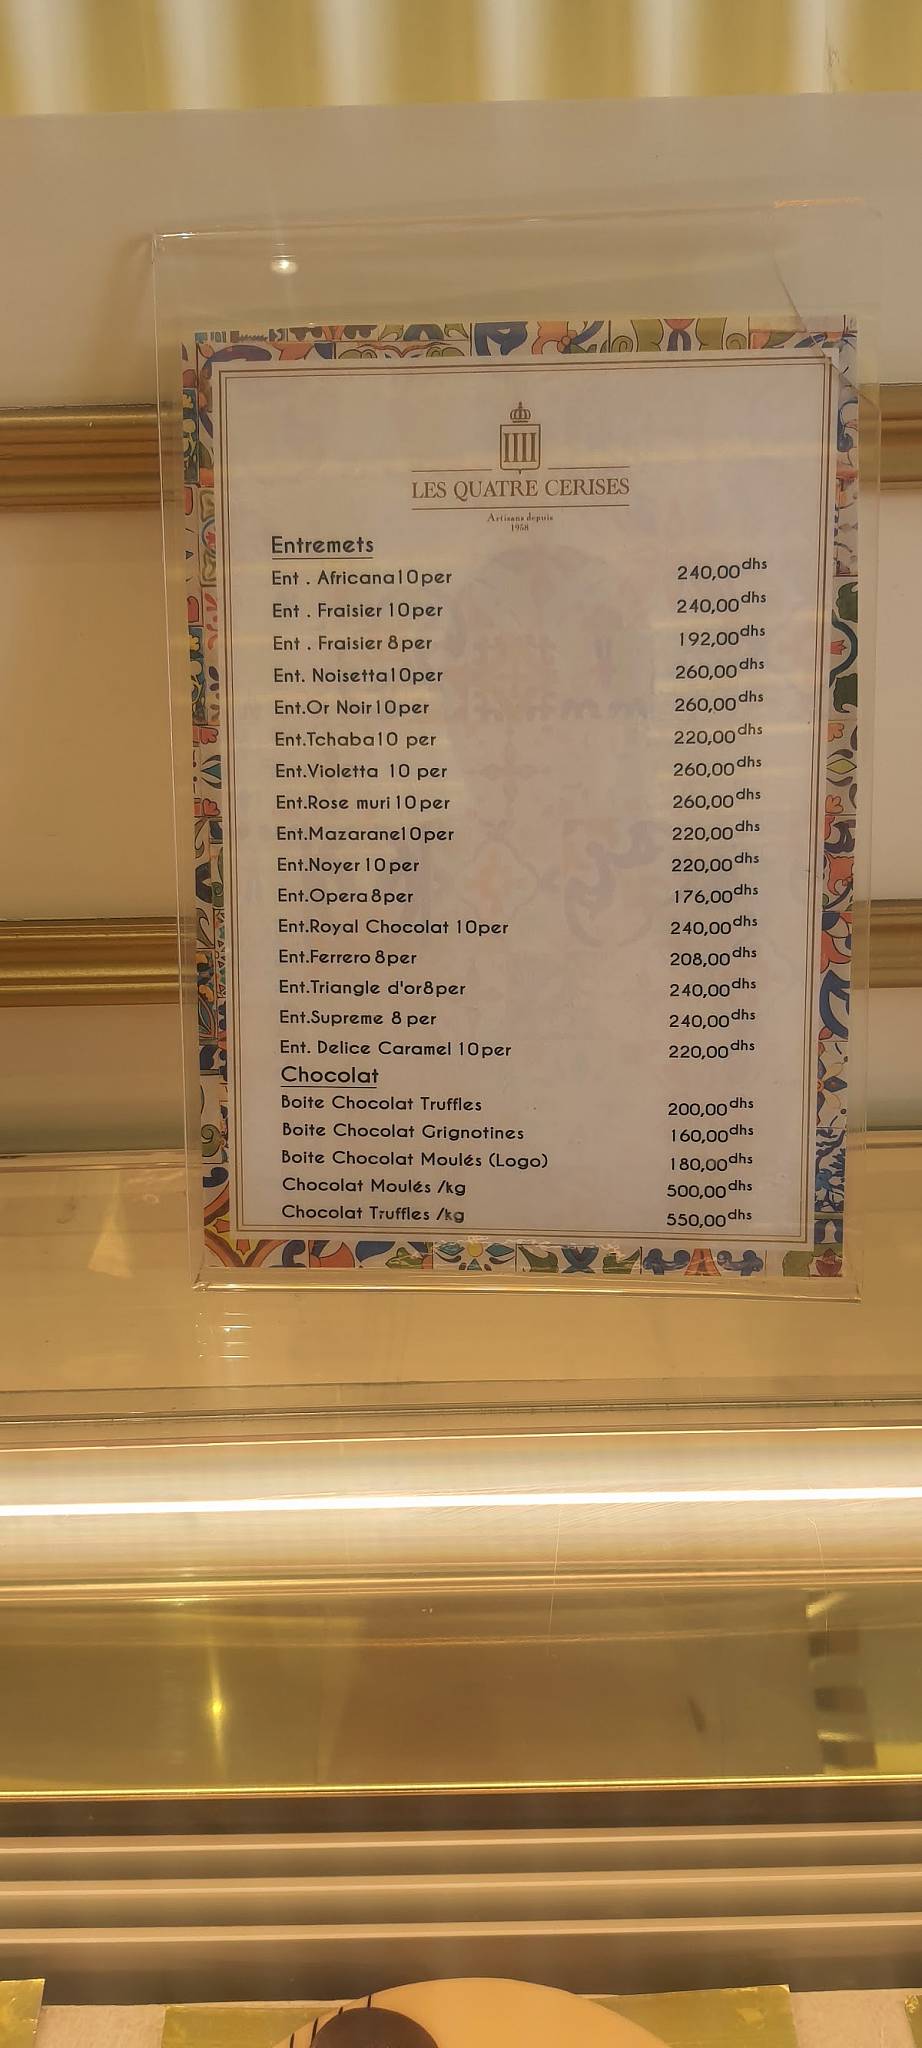 IIII
LES QUATRE CERISES
Artisans depuis
1958
Entremets
Ent . Africana10per 240,00dhs
Ent . Fraisier 10per 240,00dhs
Ent . Fraisier 8per 192,00dhs
Ent. Noisetta10per 260,00dhs
Ent.Or Noir10per 260,00dhs
Ent.Tchaba10 per 220,00dhs
Ent.Violetta 10 per 260,00dhs
Ent.Rose muri10per 260,00dhs
Ent.Mazarane10per 220,00dhs
Ent.Noyer 10per 220,00dhs
Ent.Opera8per 176,00dhs
Ent.Royal Chocolat 10per 240,00dhs
Ent.Ferrero 8per 208,00dhs
Ent.Triangle d'or8per 240,00dhs
Ent.Supreme 8 per 240,00dhs
Ent. Delice Caramel 10per 220,00dhs
Chocolat
Boite Chocolat Truffles 200,00dhs
Boite Chocolat Grignotines 160,00dhs
Boite Chocolat Moulés (Logo) 180,00dhs
Chocolat Moulés /kg 500,00dhs
Chocolat Truffles /kg 550,00dhs